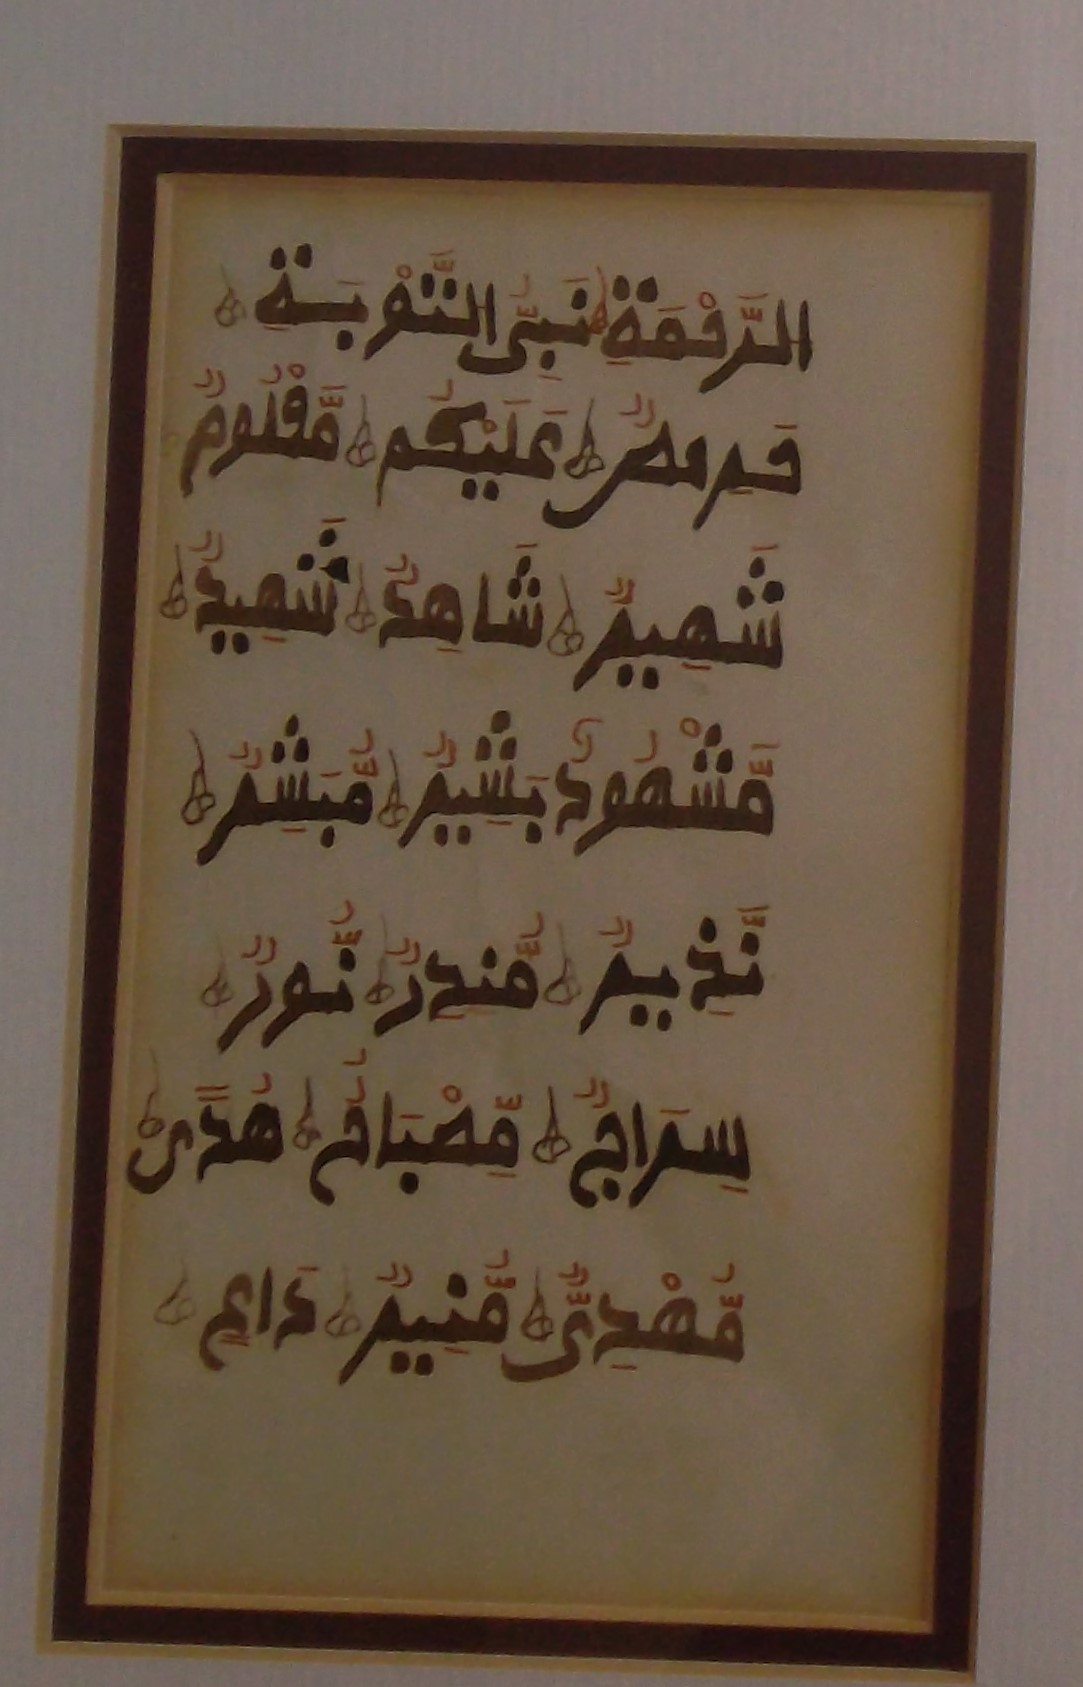 الرَّحْمَةِ نَبِىُّ التَّوْبَةِ
حَرِيصٌ عَلَيْكُم مَّعْلُومٌ
شَهِيرٌ شَاهِدٌ شَهِيدٌ
مَّشْهُودٌ بَشِيرٌ مُّبَشِّرٌ
نَّذِيرٌ مُّنذِرٌ نُّورٌ
سِرَاجٌ مِّصْبَاحٌ هُدًى
مُّهْدِىٌّ مُّنِيرٌ دَاعٍ